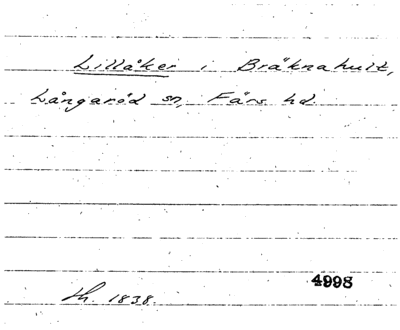 Lillåker i Bräknahult,
Långaröd sn, Färs hd.
4998
lh. 1838.